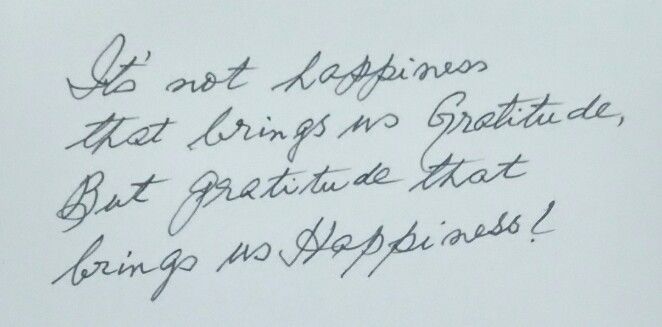 It's not happiness
that brings us Gratitude,
But gratitude that
brings us Happiness!